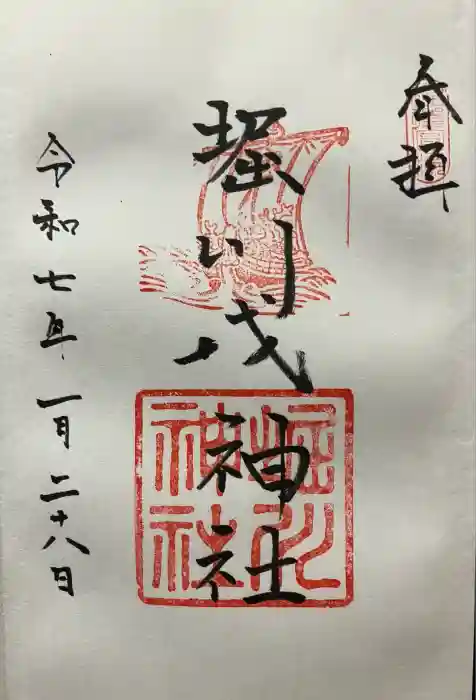 奉拝
堀川戎神社
令和七年一月二十八日
堀川
神社